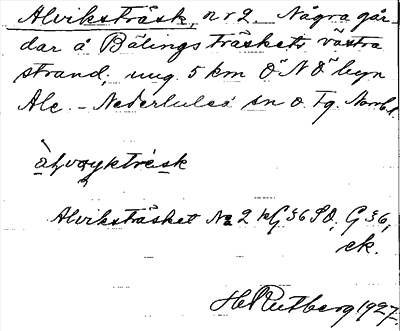 Alviksträsk, nr 2. Några går-
dar å Bälings träskets västra
strand, ung. 5 km Ö N Ö byn
Ale. - Nederluleå sn o. tg. Norrb. l.
Alviksträsket № 2 kG 36 SO, G 36,
ek.
H. Rutberg 1927.